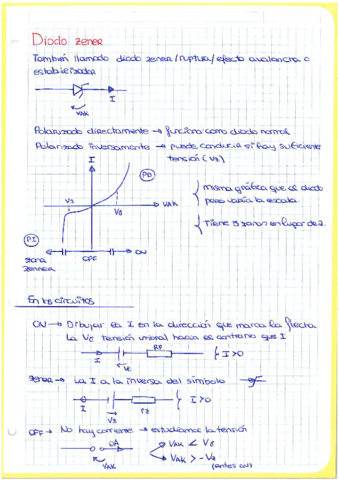 Diodo zener
También llamado diodo zener/ruptura/efecto avalancha o
estabilizador
I
VAK
Polarizado directamente → funciona como diodo normal
Polarizado inversamente → puede conducir si hay suficiente
tensión (Vz)
I
PD
Vz
VAK
Vδ
misma gráfica que el diodo
pero varía la escala.
Tiene 3 zonas en lugar de 2.
PI
ZONA
ZENNER
OFF
ON
En los circuitos
ON → Dibujar la I en la dirección que marca la flecha
La Vδ tensión umbral hacia el contrario que I
RF
I
Vδ
I>0
zener → La I a la inversa del símbolo
I
Vz
rz
I>0
OFF → No hay corriente → estudiamos la tensión
0A
VAK
VAK < Vδ
VAK > -Vz
(antes ON)